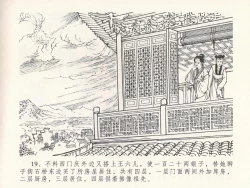 19、不料西门庆外边又搭上王六儿，使一百二十两银子，替她狮
子街石桥东边买了所房屋居住。共有四层，一层门面两间外加库房，
二层厨房，三层居住，四层供养佛像祖先。